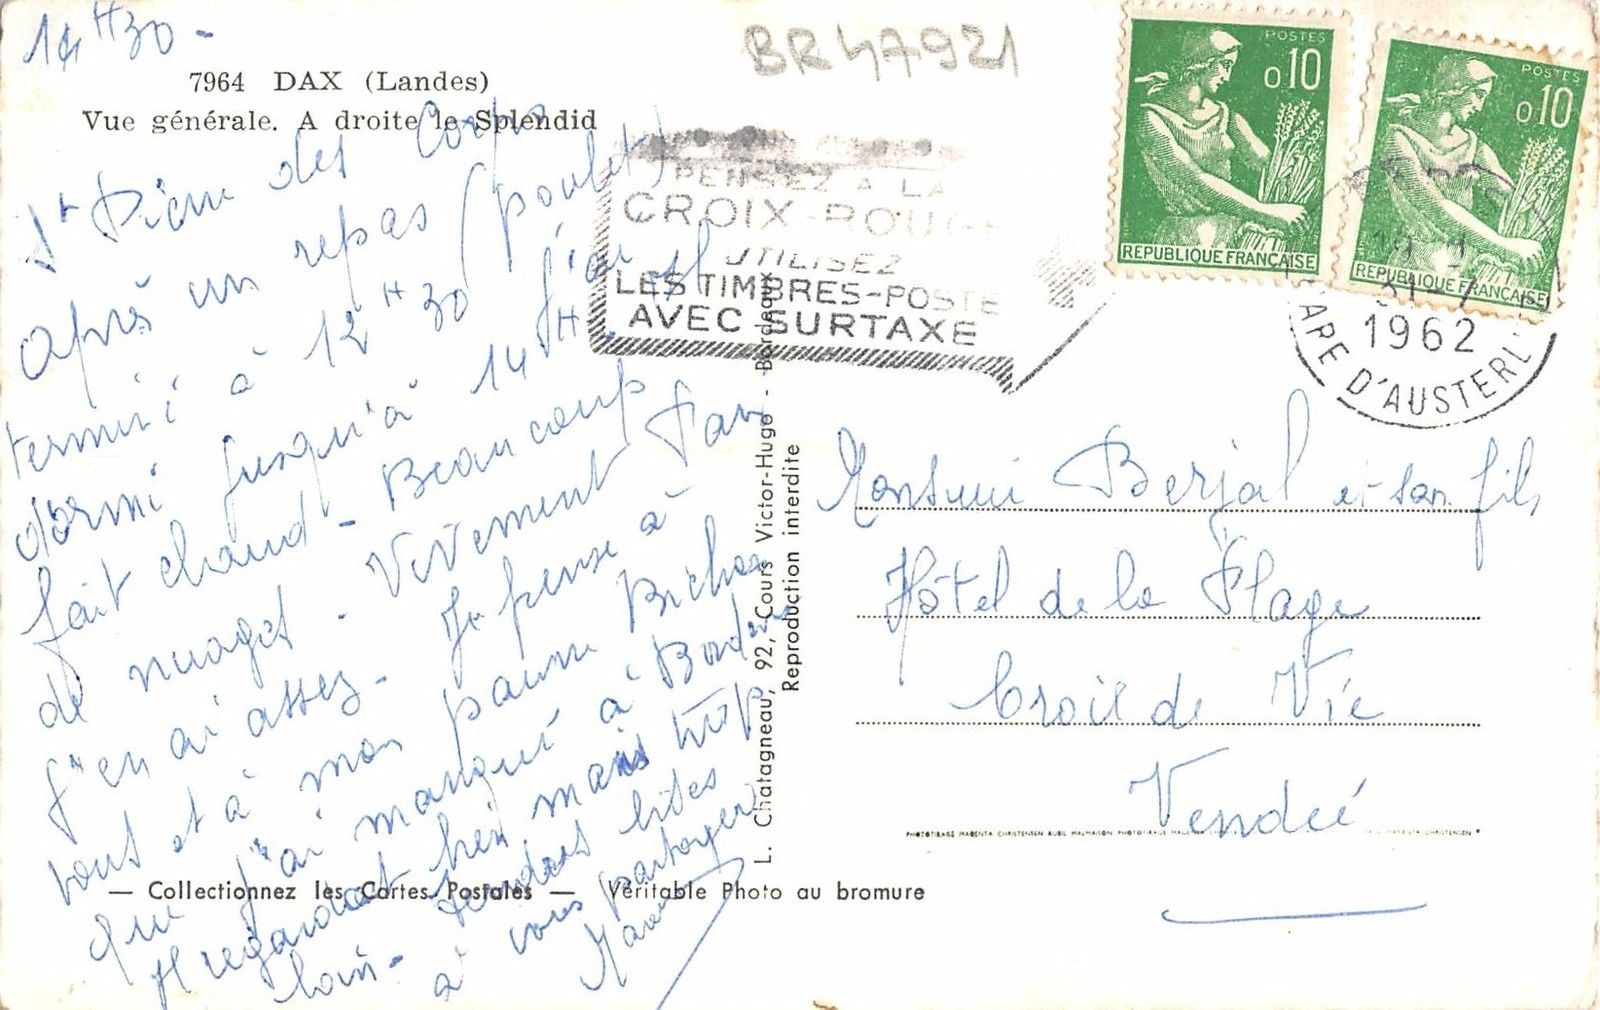 14H30 -
7964 DAX (Landes)
Vue générale. A droite le Splendid
St Pierre des Corps
Après un repas (poulet)
terminé à 12H30 j'ai
dormi jusqu'à 14H.
fait chaud - Beaucoup
de nuages. Vivement Paris
j'en ai assez. Je pense à
vous et à mon pauvre
que j'ai manqué à Bordeaux
Il regardait bien mais trop
loin. Tendres bises
à vous partager
BR47921
PENSEZ A LA
CROIX-ROUGE
UTILISEZ
LES TIMBRES-POSTE
AVEC SURTAXE
POSTES
0,10
REPUBLIQUE FRANÇAISE
POSTES
0,10
REPUBLIQUE FRANÇAISE
31-7
1962
GARE D'AUSTERL
L. Chatagneau, 92, Cours Victor-Hugo - Bordeaux
Reproduction interdite
Monsieur Berjal et son fils
Hôtel de la Plage
Croix de Vie
Vendée
— Collectionnez les Cartes Postales — Véritable Photo au bromure